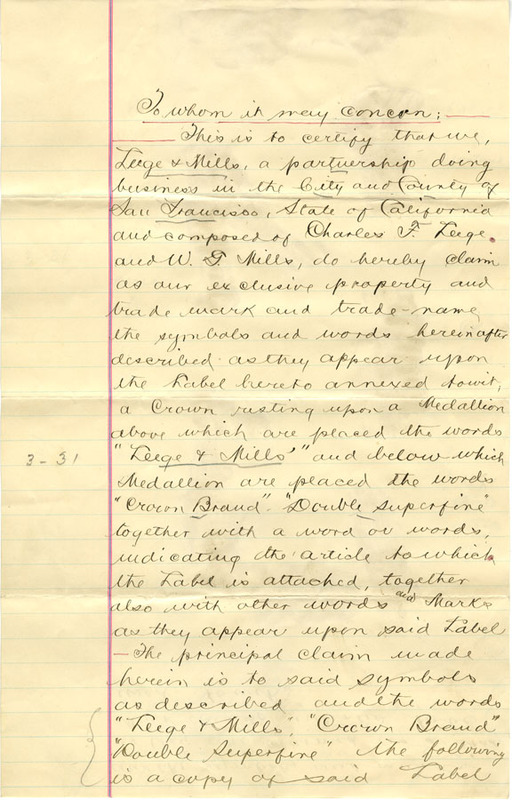 To whom it may concern:
This is to certify that we,
Leege & Mills, a partnership doing
business in the City and County of
San Francisco, State of California
and composed of Charles F. Leege
and W. G. Mills, do hereby claim
as our exclusive property and
trade mark and trade-name
the symbols and words hereinafter
described as they appear upon
the Label hereto annexed towit,
a Crown resting upon a Medallion
above which are placed the words
3-31
"Leege & Mills" and below which
Medallion are placed the words
"Crown Brand" "Double Superfine"
together with a word or words,
indicating the article to which
the Label is attached, together
also with other words and Marks
as they appear upon said Label
- The principal claim made
herein is to said symbols
as described and the words
"Leege & Mills", "Crown Brand"
"Double Superfine" the following
is a copy of said Label